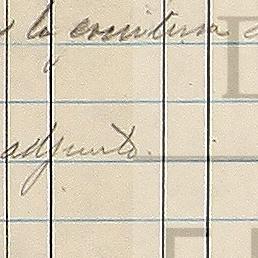 la escritura
adjunto.